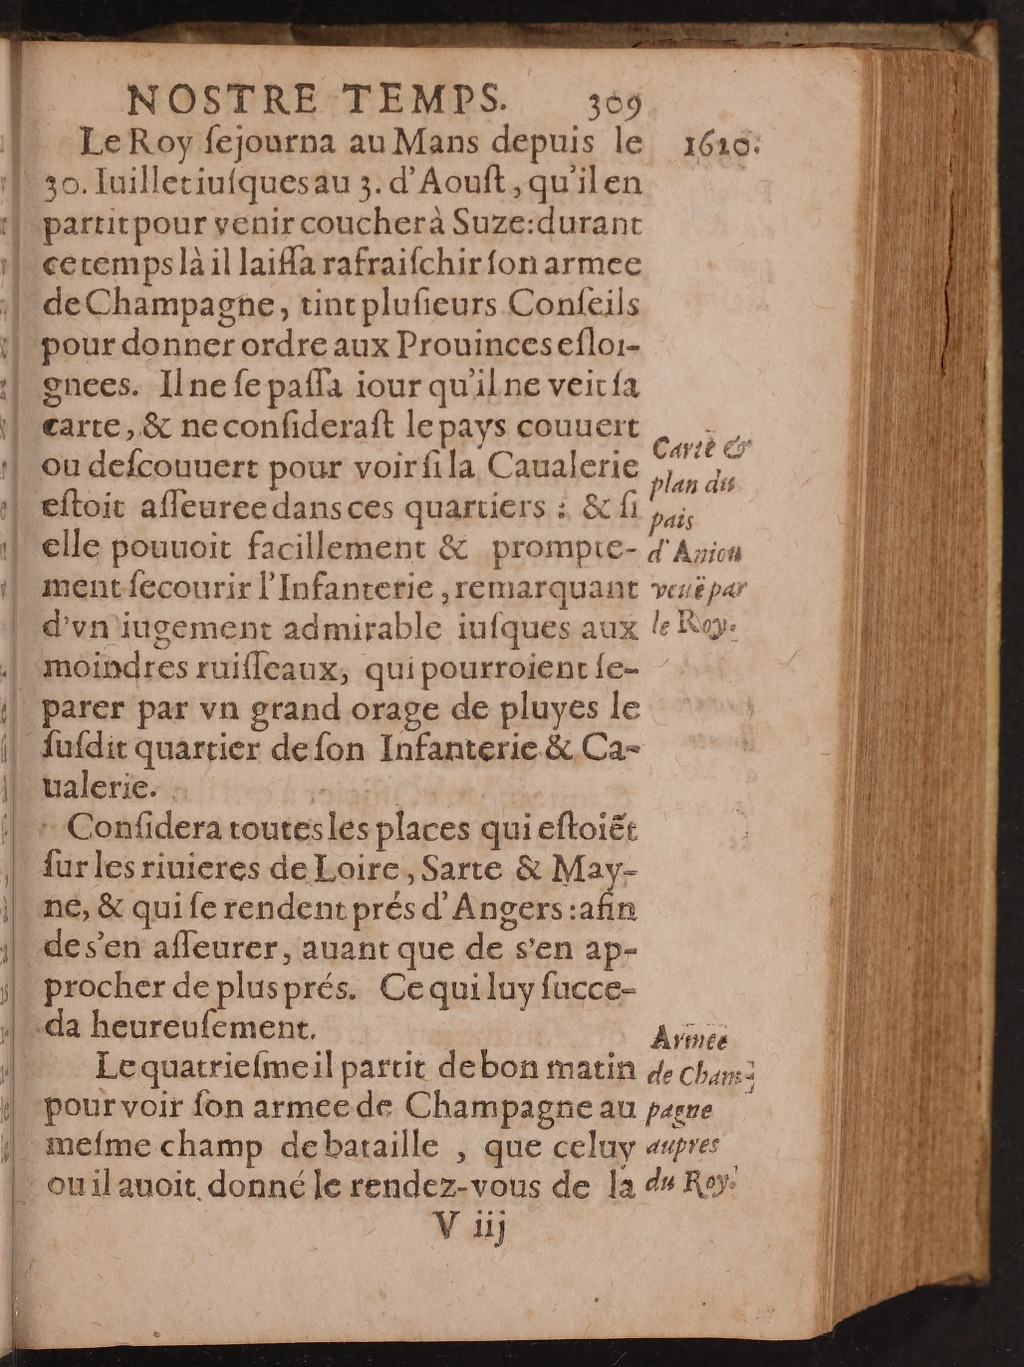 NOSTRE TEMPS. 309
Le Roy ſejourna au Mans depuis le
1620.
30. Iuillet iuſques au 3. d'Aouſt, qu'il en
partit pour venir coucher à Suze: durant
ce temps là il laiſſa rafraiſchir ſon armee
de Champagne, tint pluſieurs Conſeils
pour donner ordre aux Prouinces efloi-
gnees. Il ne ſe paſſa iour qu'il ne veit ſa
carte, & ne conſideraſt le pays couuert
ou deſcouuert pour voir ſi la Caualerie
eſtoit aſſeuree dans ces quartiers ; & ſi
elle pouuoit facillement & prompte-
ment ſecourir l'Infanterie, remarquant
d'vn iugement admirable iuſques aux
moindres ruiſſeaux, qui pourroient ſe-
parer par vn grand orage de pluyes le
ſuſdit quartier de ſon Infanterie & Ca-
ualerie.
Carte &
plan du
pais
d'Aniou
veuë par
le Roy.
Conſidera toutes les places qui eſtoiẽt
ſur les riuieres de Loire, Sarte & May-
ne, & qui ſe rendent prés d'Angers: afin
de s'en aſſeurer, auant que de s'en ap-
procher de plus prés. Ce qui luy ſucce-
da heureuſement.
Le quatrieſme il partit de bon matin
pour voir ſon armee de Champagne au
meſme champ de bataille , que celuy
ou il auoit donné le rendez-vous de la
Armée
de Cham-
pagne
aupres
du Roy.
V iij